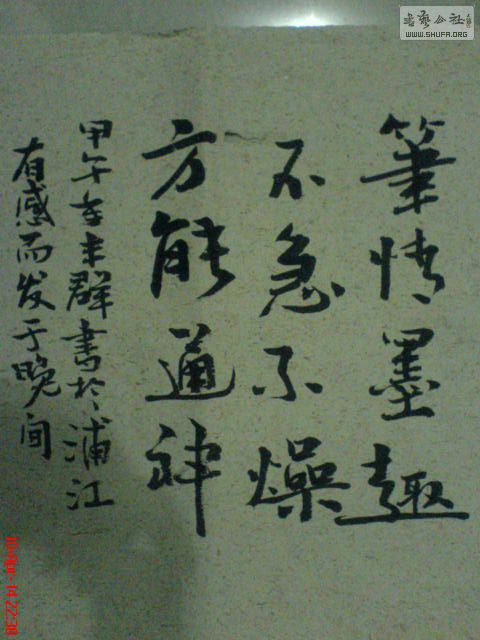 書藝公社
WWW.SHUFA.ORG
筆情墨趣
不急不燥
方能通神
甲午群書於浦江
有感而发于晚间
10/Apr-14 22:38